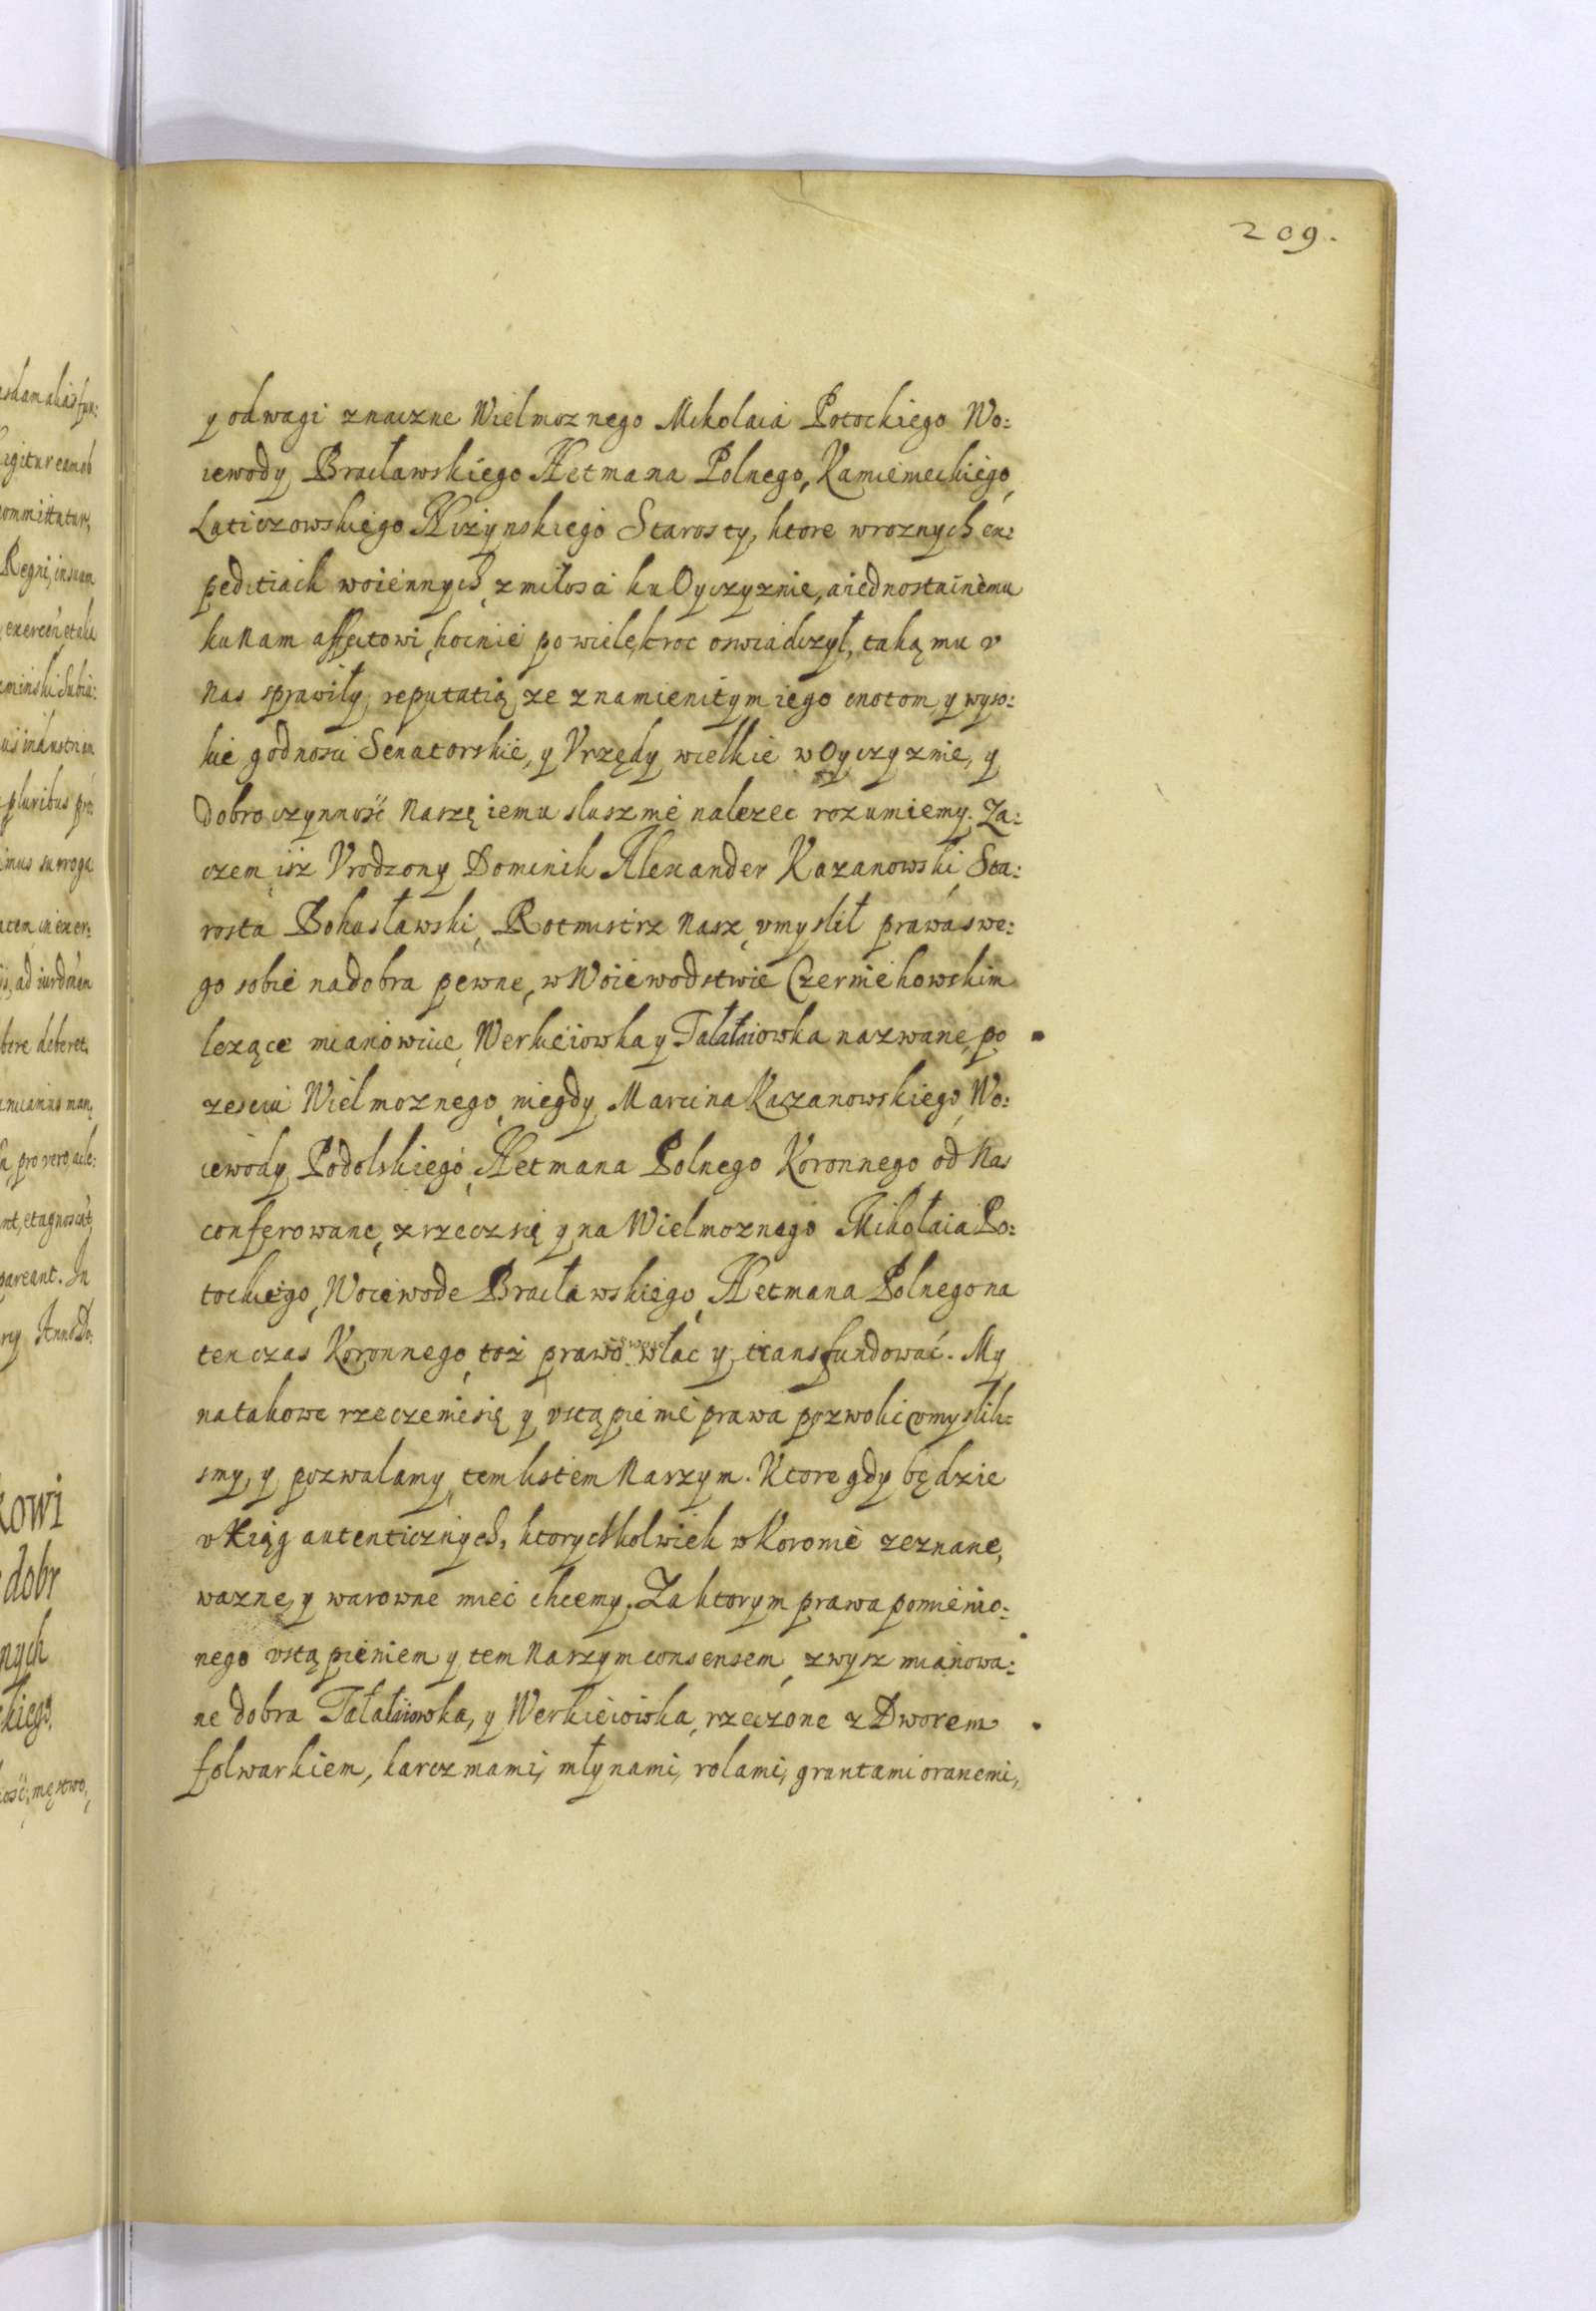 209.
y odwagi znaczne Wielmoznego Mikolaia Potockiego Wo:
iewody Bracławskiego Hetmana Polnego, Kamiemeckiego,
Laticzowskiego Niżynskiego Starosty, ktore wroznych ex:
peditiach woiennych, z miłosci ku Oyczyznie, a iednostainemu
ku Nam affectowi, hoinie po wielekroc oswiadczył, taką mu v
Nas sprawiły reputatią, ze znamienitym iego cnotom y wyso:
kie godnosci Senatorskie, y Vrzędy wielkie w Oyczyznie, y
Dobroczynność Naszę iemu słusznie nalezec rozumiemy. Za:
czem isz Vrodzony Dominik Alexander Kazanowski, Sta:
rosta Bohusławski, Rotmistrz Nasz, vmyslił prawa swe:
go sobie na dobra pewne, w Woiewodstwie Czerniehowskim
lezące mianowicie, Werkieiowka y Tałałaiowka nazwane, po
zesciu Wielmoznego, niegdy Marcina Kazanowskiego, Wo:
iewody Podolskiego, Hetmana Polnego Koronnego od Nas
conferowane, zrzecz się y na Wielmoznego Mikołaia Po:
tockiego, Woiewode Bracławskiego, Hetmana Polnego na
ten czas Koronnego, toż prawo swoie wlac y transfundować. My
na takowe rzeczenie się y vstąpienie prawa pozwolic vmyslili:
smy, y pozwalamy, tem listem Naszym. Ktore gdy będzie
v Xiąg autenticznych, ktorychkolwiek w Koronie zeznane,
wazne, y warowne mieć chcemy. Za ktorym prawa pomienio:
nego vstąpieniem y tem Naszym consensem, zwysz mianowa:
ne dobra Tałałaiowka, y Werkieiowka, rzeczone z Dworem
folwarkiem, karczmami, młynami, rolami, gruntami oranemi,